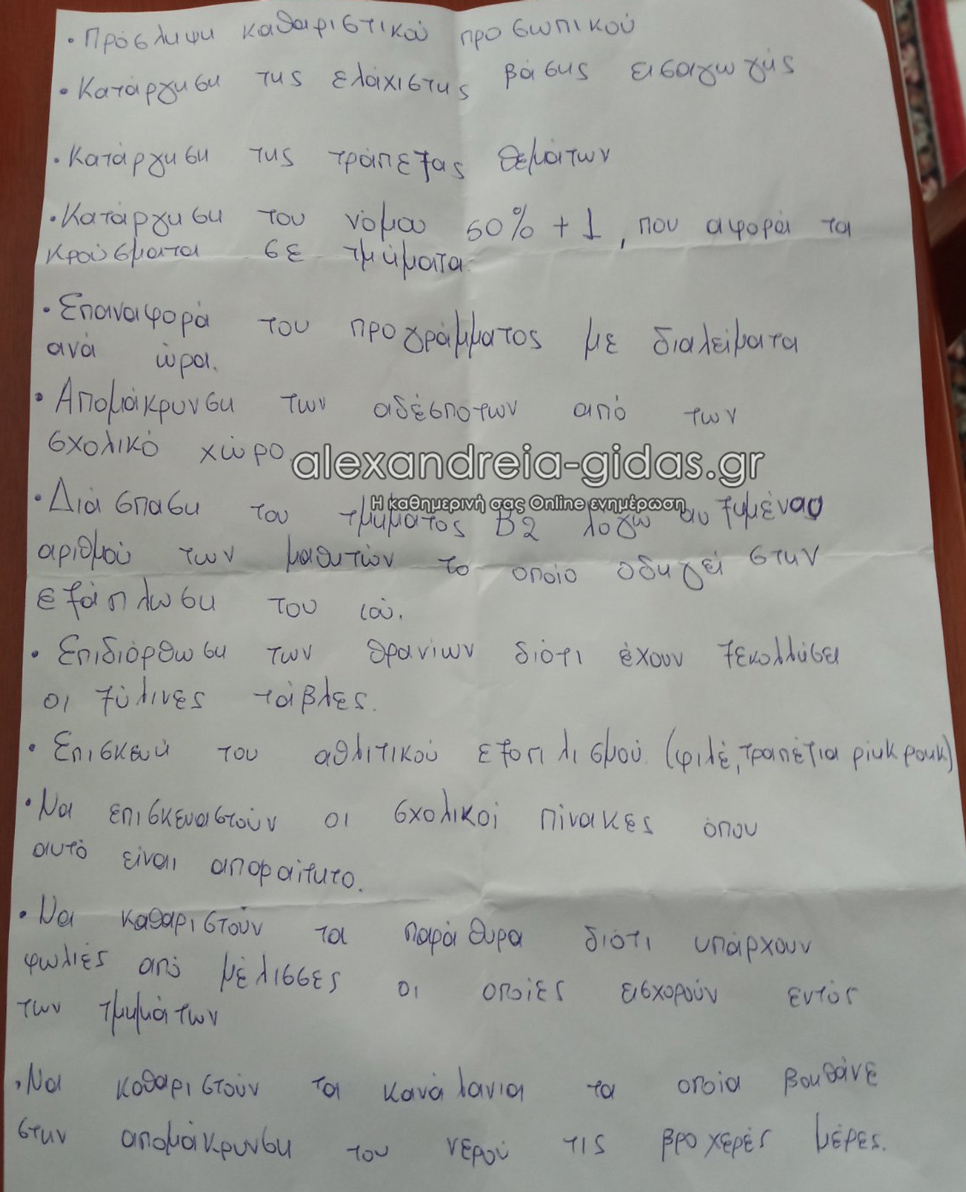 • Πρόσληψη καθαριστικού προσωπικού
• Κατάργηση της ελάχιστης βάσης εισαγωγής
• Κατάργηση της τράπεζας θεμάτων
• Κατάργηση του νόμου 50% + 1, που αφορά τα
κρούσματα σε τμήματα
• Επαναφορά του προγράμματος με διαλείματα
ανά ώρα.
• Απομάκρυνση των αδέσποτων από των
σχολικό χώρο
alexandreia-gidas.gr
Η καθημερινή σας Online ενημέρωση
• Διάσπαση του τμήματος Β2 λόγω αυξημένου
αριθμού των μαθητών το οποίο οδηγεί στην
εξάπλωση του ιού.
• Επιδιόρθωση των θρανίων διότι έχουν ξεκολλήσει
οι ξύλινες τάβλες.
• Επισκευή του αθλιτικού εξοπλισμού (φιλέ, τραπέζια pink ponk)
• Να επισκευαστούν οι σχολικοί πίνακες όπου
αυτό είναι απαραίτητο.
• Να καθαριστούν τα παράθυρα διότι υπάρχουν
φωλιές από μέλισσες οι οποίες εισχορούν εντός
των τμημάτων
• Να καθαριστούν τα κανάλανια τα οποία βοηθάνε
στην απομάκρυνση του νερού τις βροχερές μέρες.